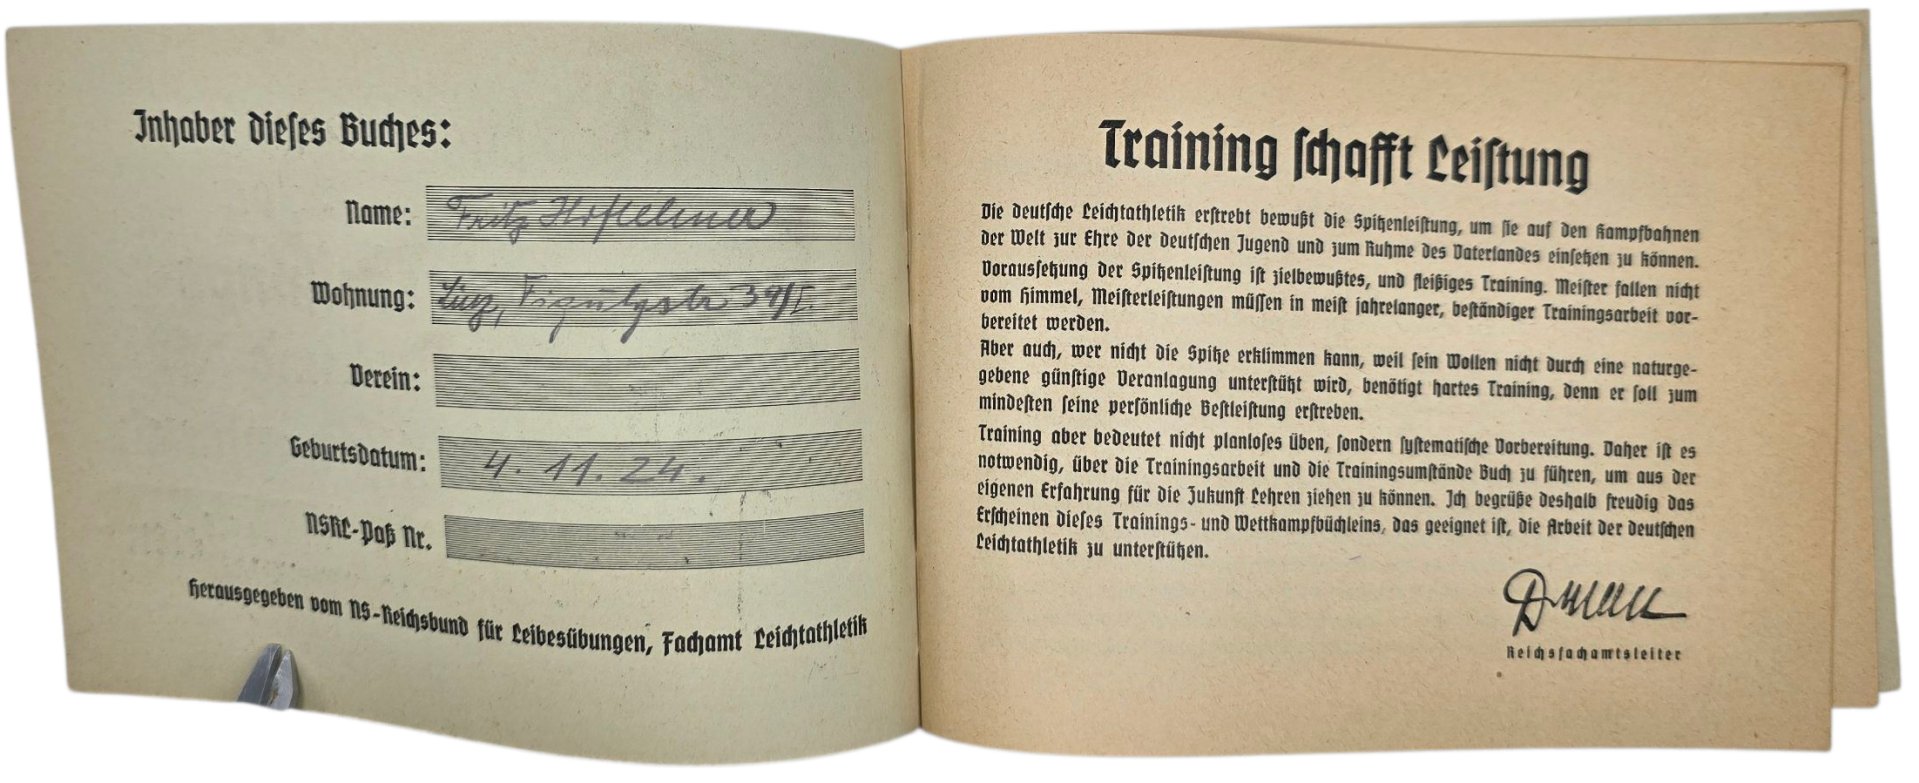 Inhaber dieses Buches:
Name: Fritz
Wohnung: Linz, 39/I.
Verein:
Geburtsdatum: 4. 11. 24.
NSRL-Paß Nr.
Herausgegeben vom NS-Reichsbund für Leibesübungen, Fachamt Leichtathletik
Training schafft Leistung
Die deutsche Leichtathletik erstrebt bewußt die Spitzenleistung, um sie auf den Kampfbahnen
der Welt zur Ehre der deutschen Jugend und zum Ruhme des Vaterlandes einsetzen zu können.
Voraussetzung der Spitzenleistung ist zielbewußtes, und fleißiges Training. Meister fallen nicht
vom Himmel, Meisterleistungen müssen in meist jahrelanger, beständiger Trainingsarbeit vor-
bereitet werden.
Aber auch, wer nicht die Spitze erklimmen kann, weil sein Wollen nicht durch eine naturge-
gebene günstige Veranlagung unterstützt wird, benötigt hartes Training, denn er soll zum
mindesten seine persönliche Bestleistung erstreben.
Training aber bedeutet nicht planloses üben, sondern systematische Vorbereitung. Daher ist es
notwendig, über die Trainingsarbeit und die Trainingsumstände Buch zu führen, um aus der
eigenen Erfahrung für die Zukunft Lehren ziehen zu können. Ich begrüße deshalb freudig das
Erscheinen dieses Trainings- und Wettkampfbüchleins, das geeignet ist, die Arbeit der deutschen
Leichtathletik zu unterstützen.
Reichsfachamtsleiter